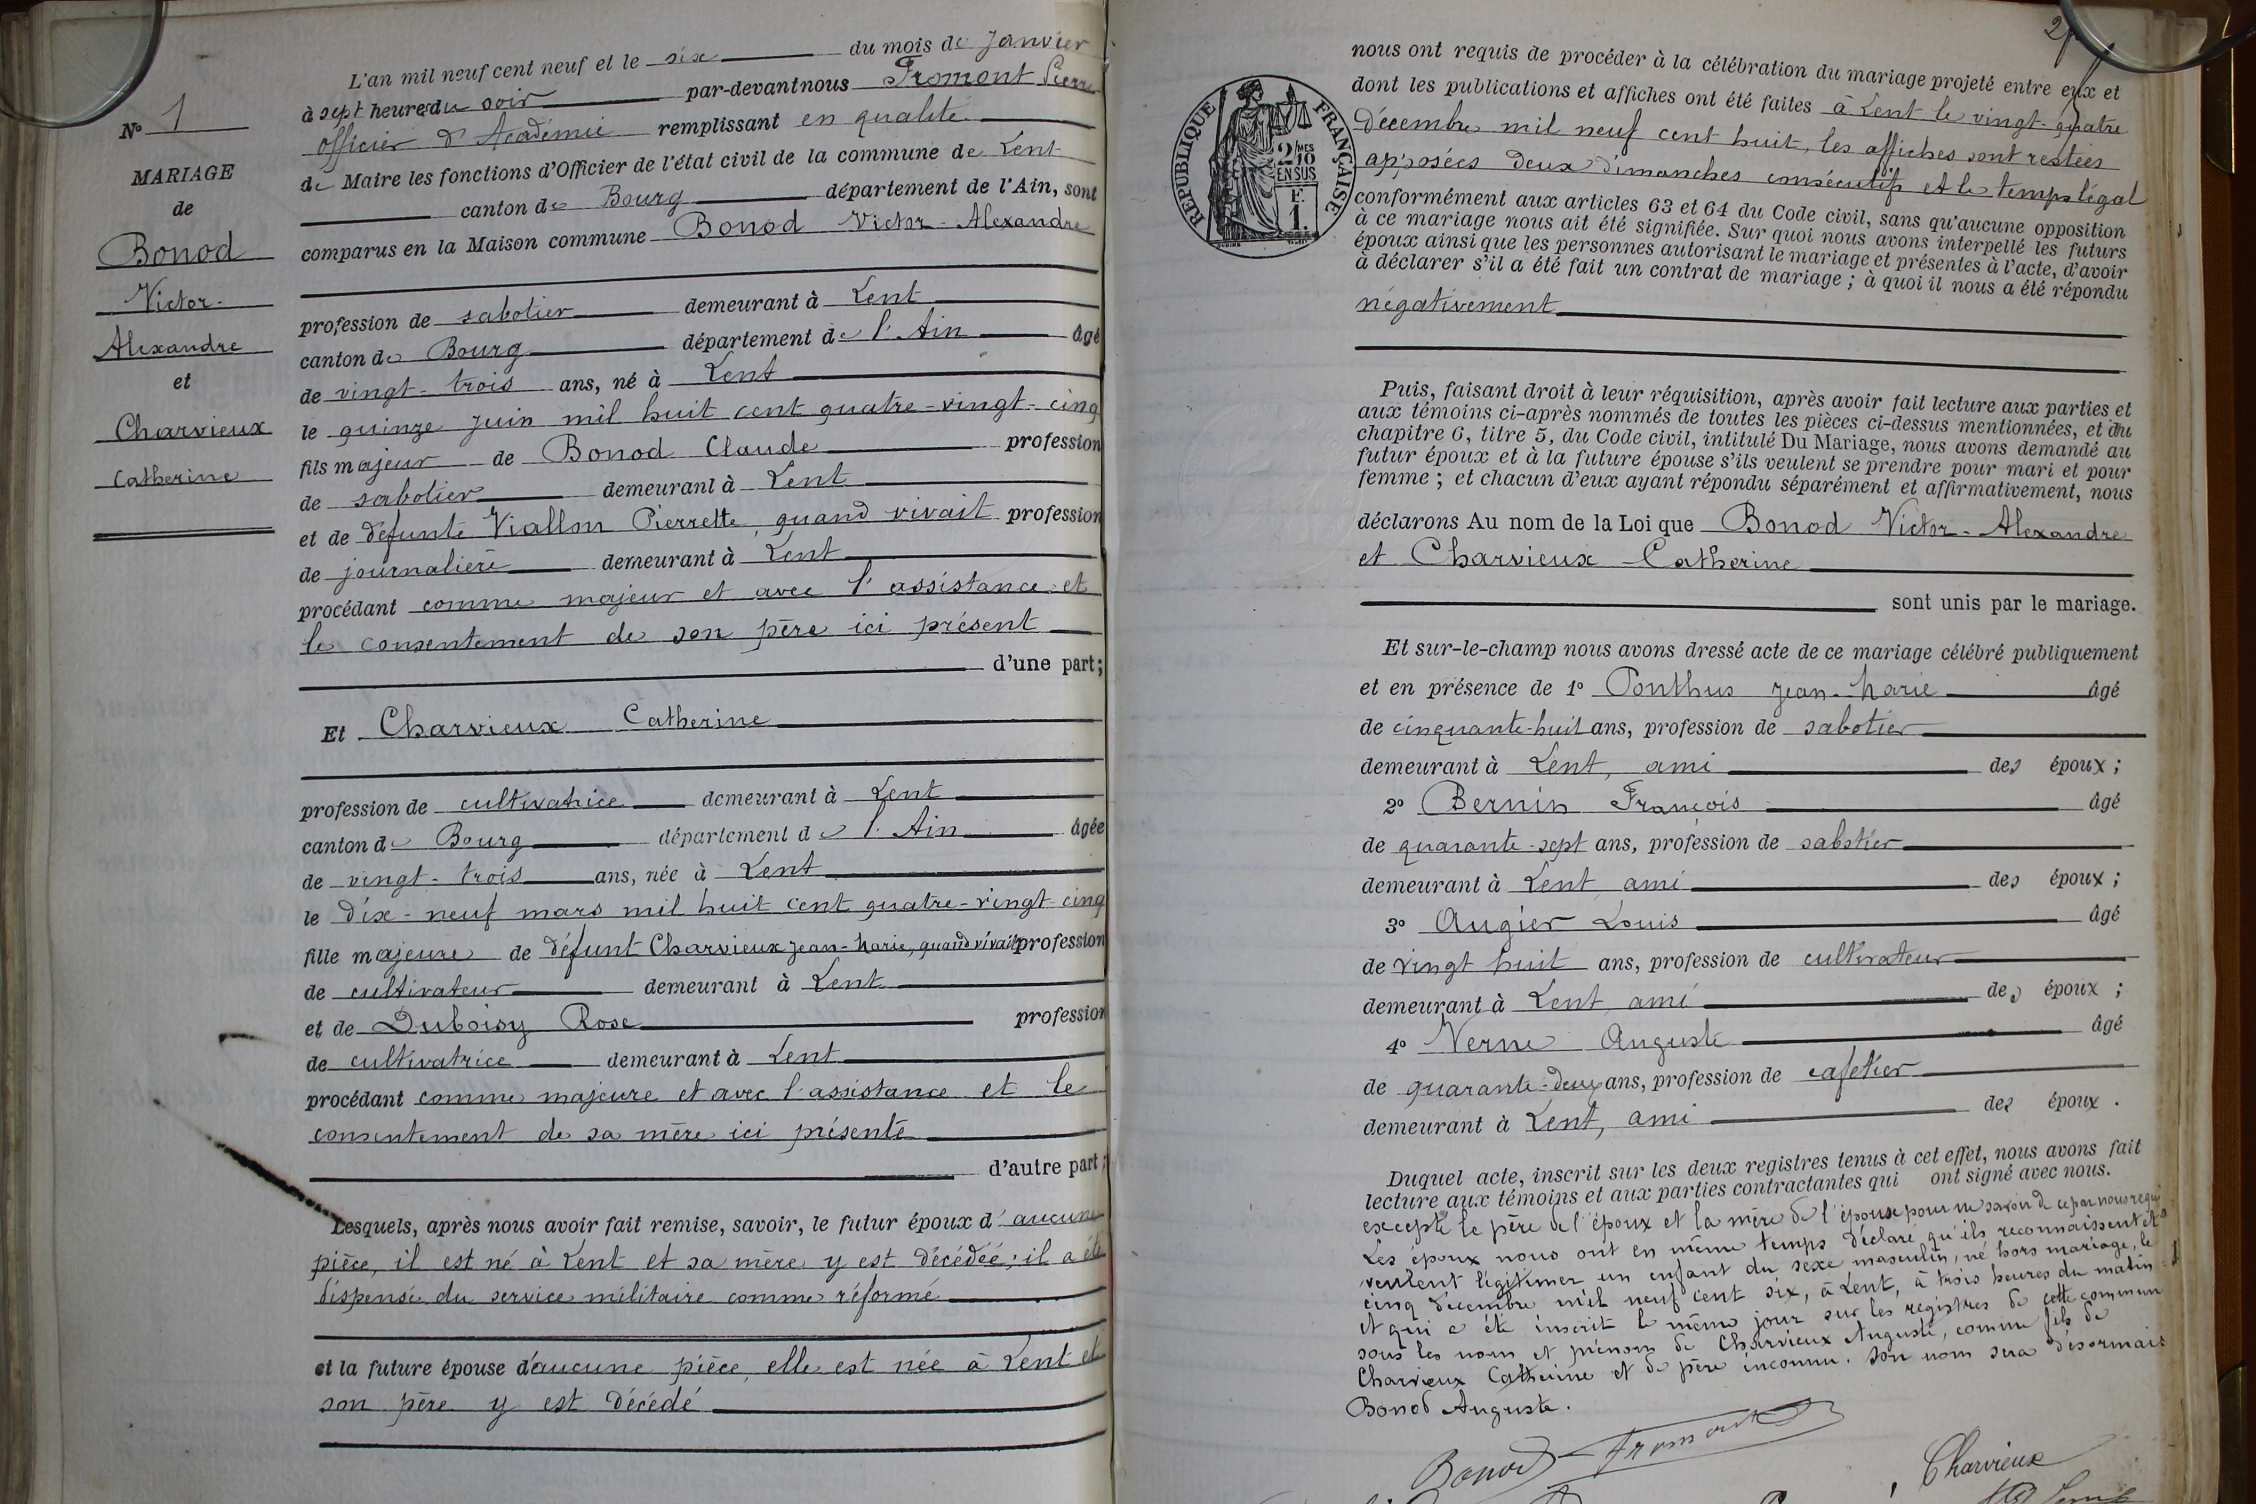 N° 1
MARIAGE
de
Bonod
Victor-
Alexandre
et
Charvieux
Catherine
L'an mil neuf cent neuf et le six du mois de Janvier
à sept heures du soir par-devant nous Fromont Pierre
officier d'Académie remplissant en qualité
de Maire les fonctions d'Officier de l'état civil de la commune de Lent
canton de Bourg département de l'Ain, sont
comparus en la Maison commune Bonod Victor-Alexandre
profession de sabotier demeurant à Lent
canton de Bourg département de l'Ain âgé
de vingt-trois ans, né à Lent
le quinze juin mil huit cent quatre-vingt-cinq
fils majeur de Bonod Claude profession
de sabotier demeurant à Lent
et de défunte Viallon Pierrette, quand vivait profession
de journalière demeurant à Lent
procédant comme majeur et avec l'assistance et
le consentement de son père ici présent
d'une part;
Et Charvieux Catherine
profession de cultivatrice demeurant à Lent
canton de Bourg département de l'Ain âgée
de vingt-trois ans, née à Lent
le dix-neuf mars mil huit cent quatre-vingt-cinq
fille majeure de défunt Charvieux Jean-Marie, quand vivait profession
de cultivateur demeurant à Lent
et de Duboisy Rose profession
de cultivatrice demeurant à Lent
procédant comme majeure et avec l'assistance et le
consentement de sa mère ici présente
d'autre part;
Lesquels, après nous avoir fait remise, savoir, le futur époux d'aucune
pièce, il est né à Lent et sa mère y est décédée; il a été
dispensé du service militaire comme réformé
et la future épouse d'aucune pièce, elle est née à Lent et
son père y est décédé
2
RÉPUBLIQUE FRANÇAISE
2/10
MES
EN SUS
F.
1.
nous ont requis de procéder à la célébration du mariage projeté entre eux et
dont les publications et affiches ont été faites à Lent le vingt-quatre
décembre mil neuf cent huit, les affiches sont restées
apposées deux dimanches consécutifs et le temps légal
conformément aux articles 63 et 64 du Code civil, sans qu'aucune opposition
à ce mariage nous ait été signifiée. Sur quoi nous avons interpellé les futurs
époux ainsi que les personnes autorisant le mariage et présentes à l'acte, d'avoir
à déclarer s'il a été fait un contrat de mariage; à quoi il nous a été répondu
négativement
Puis, faisant droit à leur réquisition, après avoir fait lecture aux parties et
aux témoins ci-après nommés de toutes les pièces ci-dessus mentionnées, et du
chapitre 6, titre 5, du Code civil, intitulé Du Mariage, nous avons demandé au
futur époux et à la future épouse s'ils veulent se prendre pour mari et pour
femme; et chacun d'eux ayant répondu séparément et affirmativement, nous
déclarons Au nom de la Loi que Bonod Victor-Alexandre
et Charvieux Catherine
sont unis par le mariage.
Et sur-le-champ nous avons dressé acte de ce mariage célébré publiquement
et en présence de 1° Ponthus Jean-Marie âgé
de cinquante-huit ans, profession de sabotier
demeurant à Lent, ami des époux;
2° Bernin François âgé
de quarante-sept ans, profession de sabotier
demeurant à Lent, ami des époux;
3° Augier Louis âgé
de vingt huit ans, profession de cultivateur
demeurant à Lent, ami des époux;
4° Verne Auguste âgé
de quarante-deux ans, profession de cafetier
demeurant à Lent, ami des époux.
Duquel acte, inscrit sur les deux registres tenus à cet effet, nous avons fait
lecture aux témoins et aux parties contractantes qui ont signé avec nous.
excepté le père de l'époux et la mère de l'épouse pour ne savoir de ce par nous requis
Les époux nous ont en même temps déclaré qu'ils reconnaissent et
veulent légitimer un enfant du sexe masculin, né hors mariage, le
cinq décembre mil neuf cent six, à Lent, à trois heures du matin
et qui a été inscrit le même jour sur les registres de cette commune
sous les nom et prénom de Charvieux Auguste, comme fils de
Charvieux Catherine et de père inconnu. Son nom sera désormais
Bonod Auguste.
Bonod Fromont
Charvieux